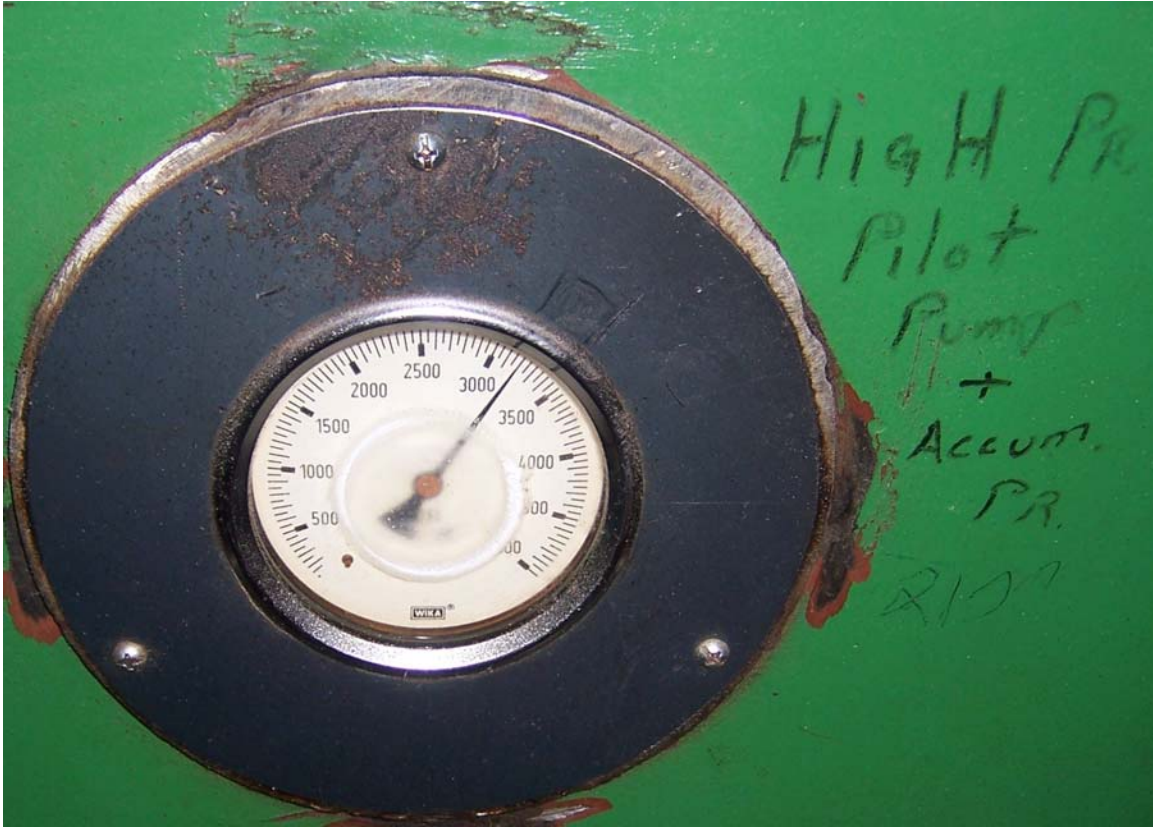 HigH PR
Pilot
Pump
+
Accum.
PR.
500
1000
1500
2000
2500
3000
3500
4000
WIKA ®